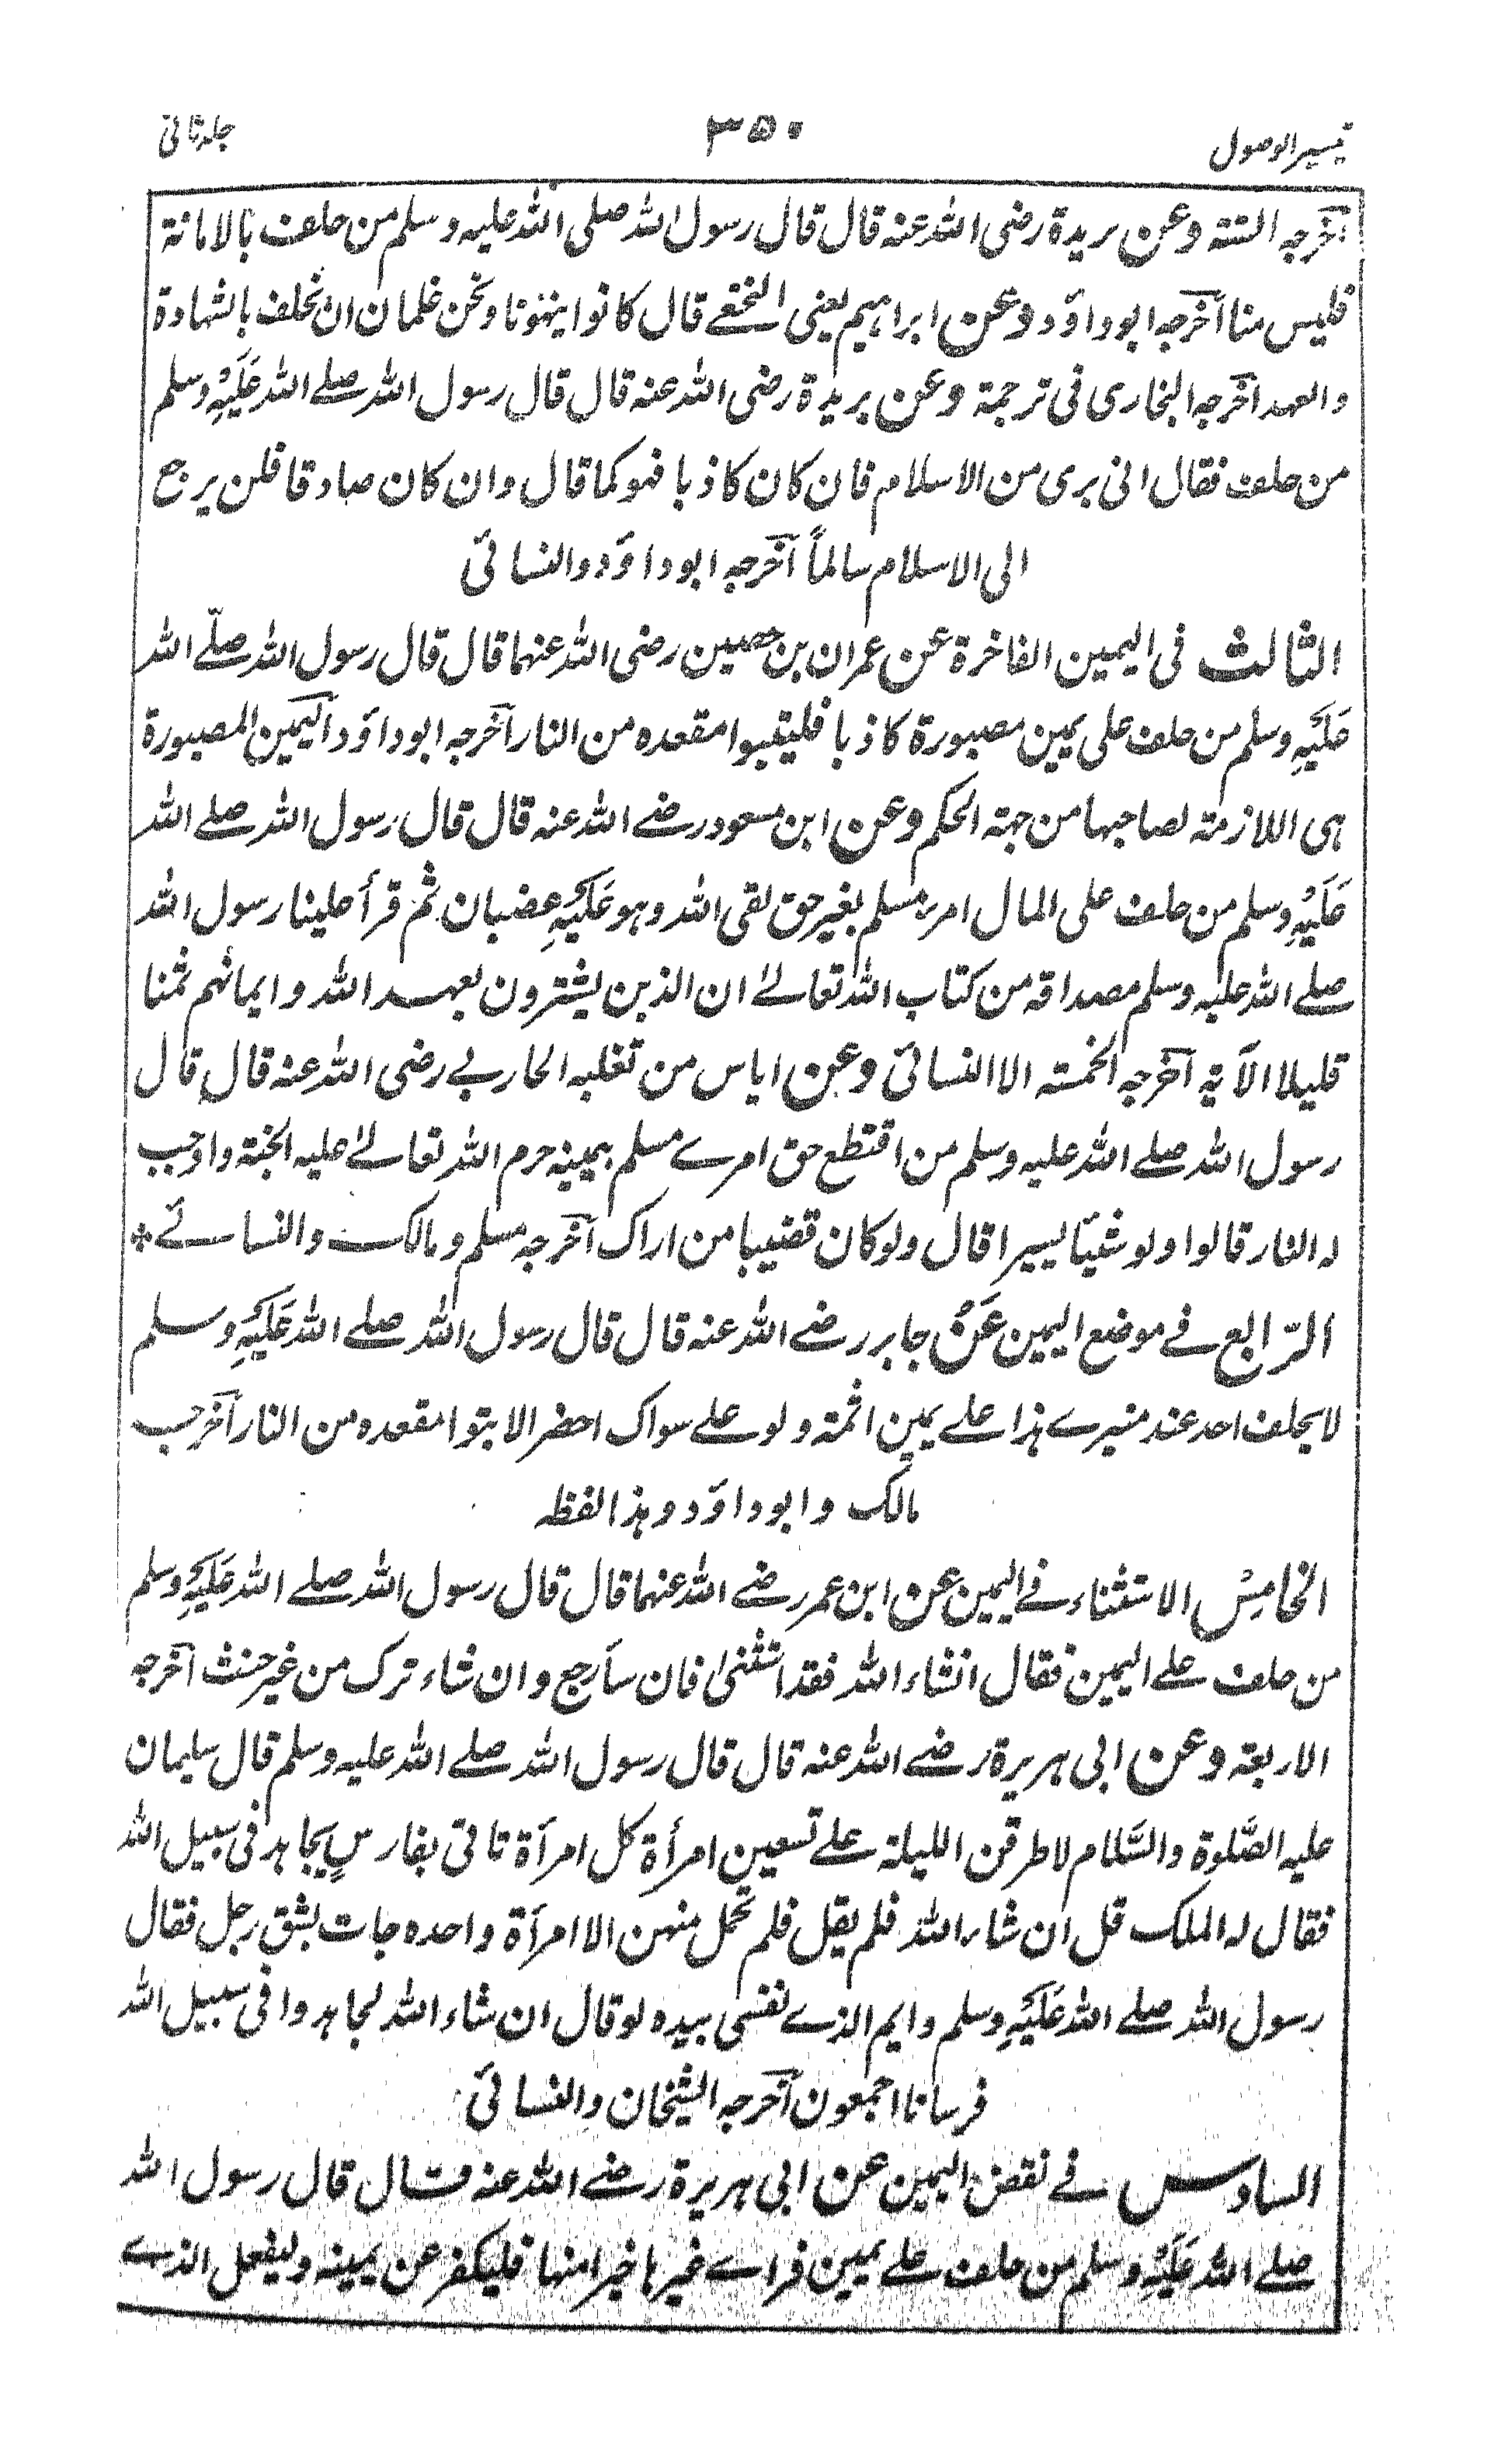 تیسیر الوصول ۳۵۰ جلد ثانی
أخرجه الستة وعن بريدة رضى الله عنه قال قال رسول الله صلى الله عليه وسلم من حلف بالامانة
فليس منا أخرجه ابوداؤد وعن ابراهيم يعنى النخعے قال كانوا ينهونا ونحن غلمان ان نحلف بالشهادة
والعهد أخرجه البخارى فى ترجمة وعن بريدة رضى الله عنه قال قال رسول الله صلے الله عَلَيْهِ وسلم
من حلف فقال انى برى من الاسلام فان كان كاذبا فهو كما قال وان كان صادقا فلن يرجع
الى الاسلام سالماً أخرجه ابوداؤد والنسائى
الثالث فى اليمين الفاخرة عن عمران بن حصين رضى الله عنهما قال قال رسول الله صلّے الله
عَلَيْهِ وسلم من حلف على يمين مصبورة كاذبا فليتبوا مقعده من النار أخرجه ابوداؤد اليمين المصبورة
هى اللازمته لصاحبها من جهته الحكم وعن ابن مسعود رضے الله عنه قال قال رسول الله صلے الله
عَلَيْهِ وسلم من حلف على المال امرء مسلم بغير حق لقى الله وهو عَلَيْهِ عضبان ثم قرأ علينا رسول الله
صلے الله عليه وسلم مصداقه من كتاب الله تعالےٰ ان الذين يشترون بعهد الله وايمانهم ثمنا
قليلا الآيه أخرجه الخمسته الا النسائى وعن اياس من تغلبه الحاربے رضى الله عنه قال قال
رسول الله صلے الله عليه وسلم من اقتطع حق امرے مسلم بيمينه حرم الله تعالےٰ عليه الجنة واوجب
له النار قالوا ولو شيئا يسيرا قال ولو كان قضيبا من اراك أخرجه مسلم ومالك والنسائے ❊
الرّابع فے موضع اليمين عَنْ جابر رضے الله عنه قال قال رسول الله صلے الله عَلَيْهِ وسلم
لا يحلف احد عند منبرے هذا علے يمين اثمة ولو علے سواك احضر الا بتوا مقعده من النار أخرجب
مالك وابوداؤد وهذا لفظه
الخامِسْ الاستثناء فے اليمين عن ابن عمر رضے الله عنهما قال قال رسول الله صلے الله عَلَيْهِ وسلم
من حلف علے اليمين فقال انشاء الله فقد استثنىٰ فان سأ رجع وان شاء ترك من غير حنث أخرجه
الاربعته وعن ابى هريرة رضے الله عنه قال قال رسول الله صلے الله عليه وسلم قال سليمان
عليه الصَّلوة والسَّلام لاطرقن الليلة علے تسعين امرأة كل امرأة تاتى بفارسٍ يجاهد فى سبيل الله
فقال له الملك قل ان شاء الله فلم يقل فلم تحمل منهن الا امرأة واحده جات بشق رجل فقال
رسول الله صلے الله عَلَيْهِ وسلم وايم الذے نفسى بيده لو قال ان شاء الله لجاهدوا فى سبيل الله
فرسانا اجمعون أخرجه الشيخان والنسائى
السادس فے نقض اليمين عن ابى هريرة رضے الله عنه قال قال رسول الله
صلے الله عَلَيْهِ وسلم من حلف علے يمين فراے غيرها خيرا منها فليكفر عن يمينه وليفعل الذے